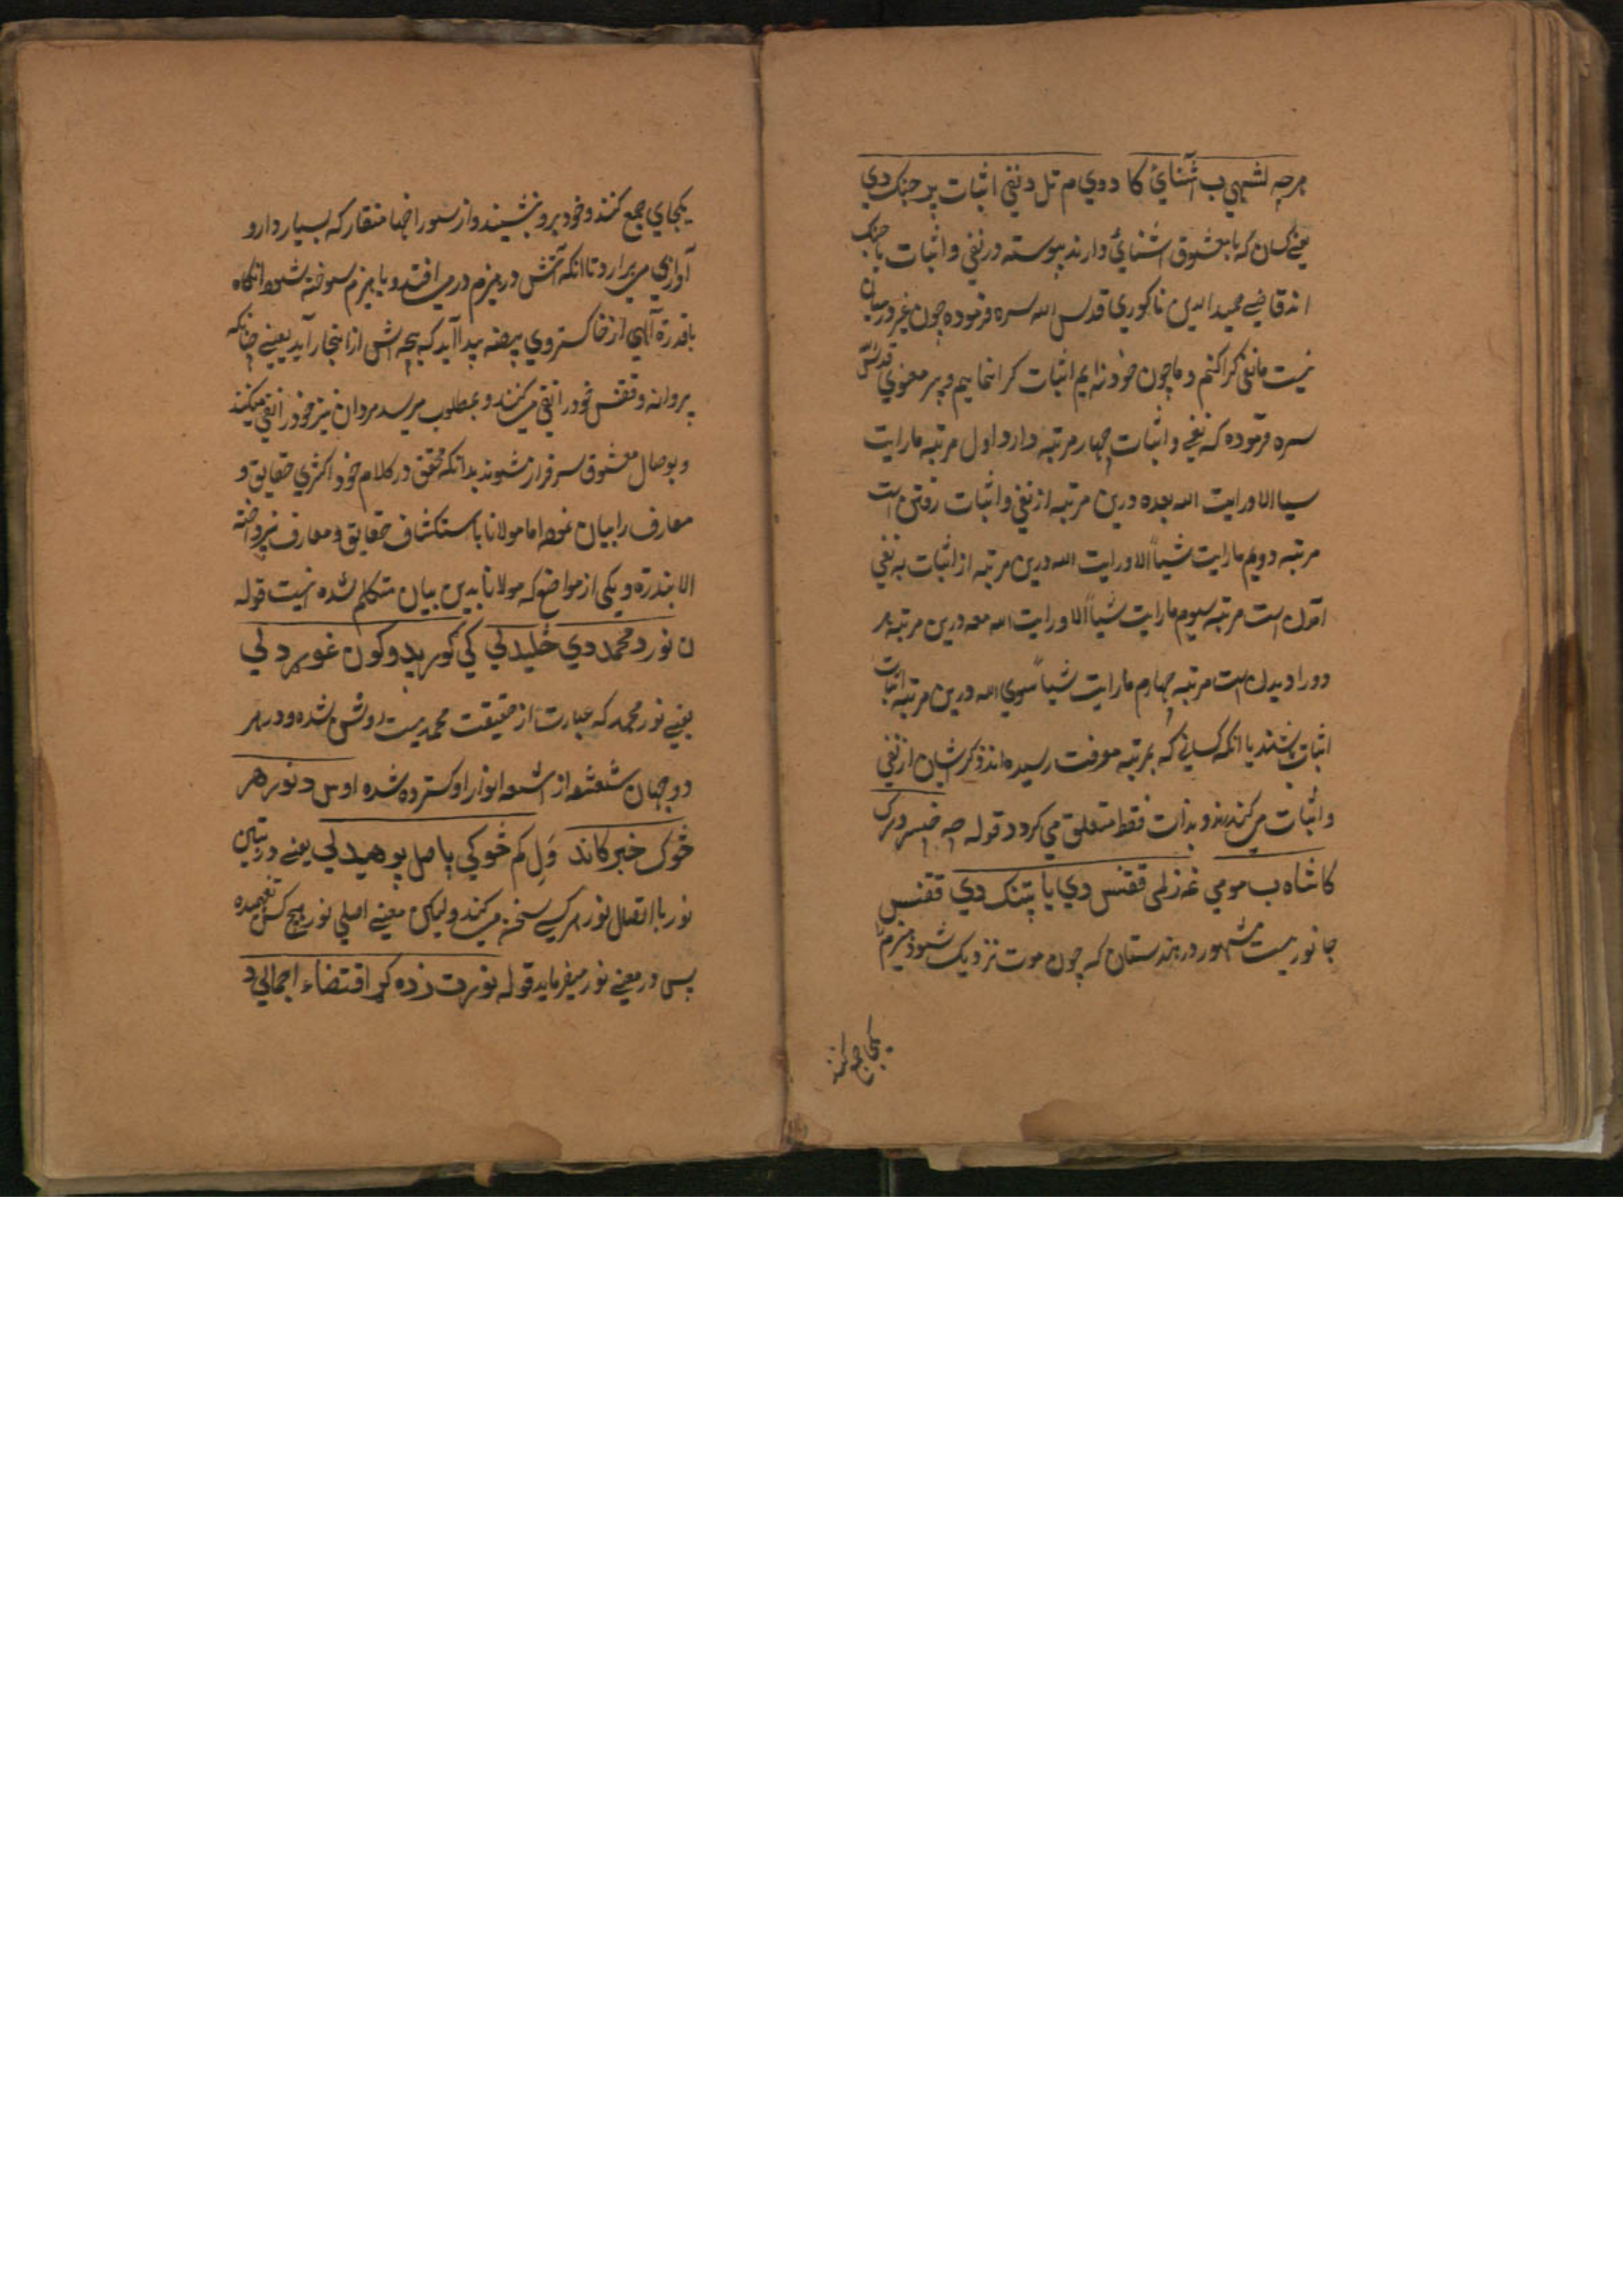 هرچه لشهي ب آشنائ کا دوي م تل د نفي اثبات پر جنک دي
يعنے کسان که با معشوق اشنائ دارند پيوسته در نفي و اثبات با جنک
اند قاضے حميد الدين ناکوري قدس الله سره فرموده چون غير در ميان
نيست ما نفي کرا کنم و ما چون خود نه ايم اثبات کرا نمايم و پير معنوي قدس
سره فرموده که نفي و اثبات چهار مرتبه دارد اول مرتبه ما رايت
سيا الا و رايت الله بعده درين مرتبه از نفي و اثبات رفتن است
مرتبه دويم ما رايت شياً الا و رايت الله درين مرتبه از اثبات به نفي
امدن است مرتبه سيوم ما رايت شياً الا و رايت الله معه درين مرتبه هر
دو را ديدن است مرتبه چهارم ما رايت شياً سوي الله درين مرتبه اثبات
اثبات باشند يا انکه کسانے که بمرتبه معرفت رسيده اند ذکر شان از نفي
و اثبات ميکندرند و بذات فقط متعلق مي کردد قوله چه
کا شاه ب مومي غه زلمي ققنس دي يا پتنک دي ققنس
جانوريست مشهور در هندستان که چون موت نزديک شود هيزم را
يکجاي جمع کنند
يکجاي جمع کنند و خود برو بنشينند و از سوراخها منقار که بسيار دارد
آوازي مي برارد تا انکه آتش در هيزم در مي افتد و با هيزم سوخته شود انکاه
با قدرة آلهي از خاکستر وي بيضه پيدا آيد که بچه اش از انجا برآيد يعنے چنانکه
پروانه و ققنس خود را نفي ميکنند و بمطلوب ميرسد مردان نيز خود را نفي ميکنند
و بوصال معشوق سرفراز شوند بدانکه محقق در کلام خود اکثري حقايق و
معارف را بيان نموده اما مولانا باستکشاف حقايق و معارف نپرداخته
الا بندرة و يکي از مواضع که مولانا بدين بيان متکلم شده اينست قوله
ن نور د محمد دي ځليدلي کي کور پدو کون غوړيدلي
يعنے نور محمد که عبارت از حقيقت محمديست روشن شده و در هر
دو جهان شعشعه از اشعه انوار او کسترده شده اوس د نور هر
څوک خبر کاند ول کم څوکي پاصل پوهيدلي يعنے در بيان
نور با اتصال نور هر کسے سخن ميکند وليکن معنے اصلي نور هيچ کس نفهميده
پس در معنے نور ميفرمايد قوله نور ت زده کړ اقتضاء اجمالي د